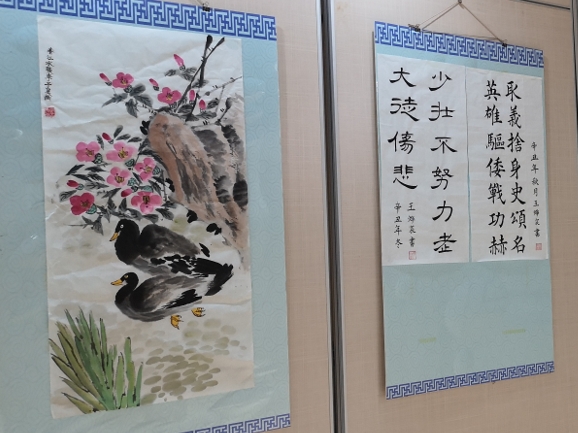 耿義捨身史頌名
英雄驅倭戰功赫
辛丑年秋月王
書
少壮不努力老
大徒傷悲
王
書
辛丑年冬